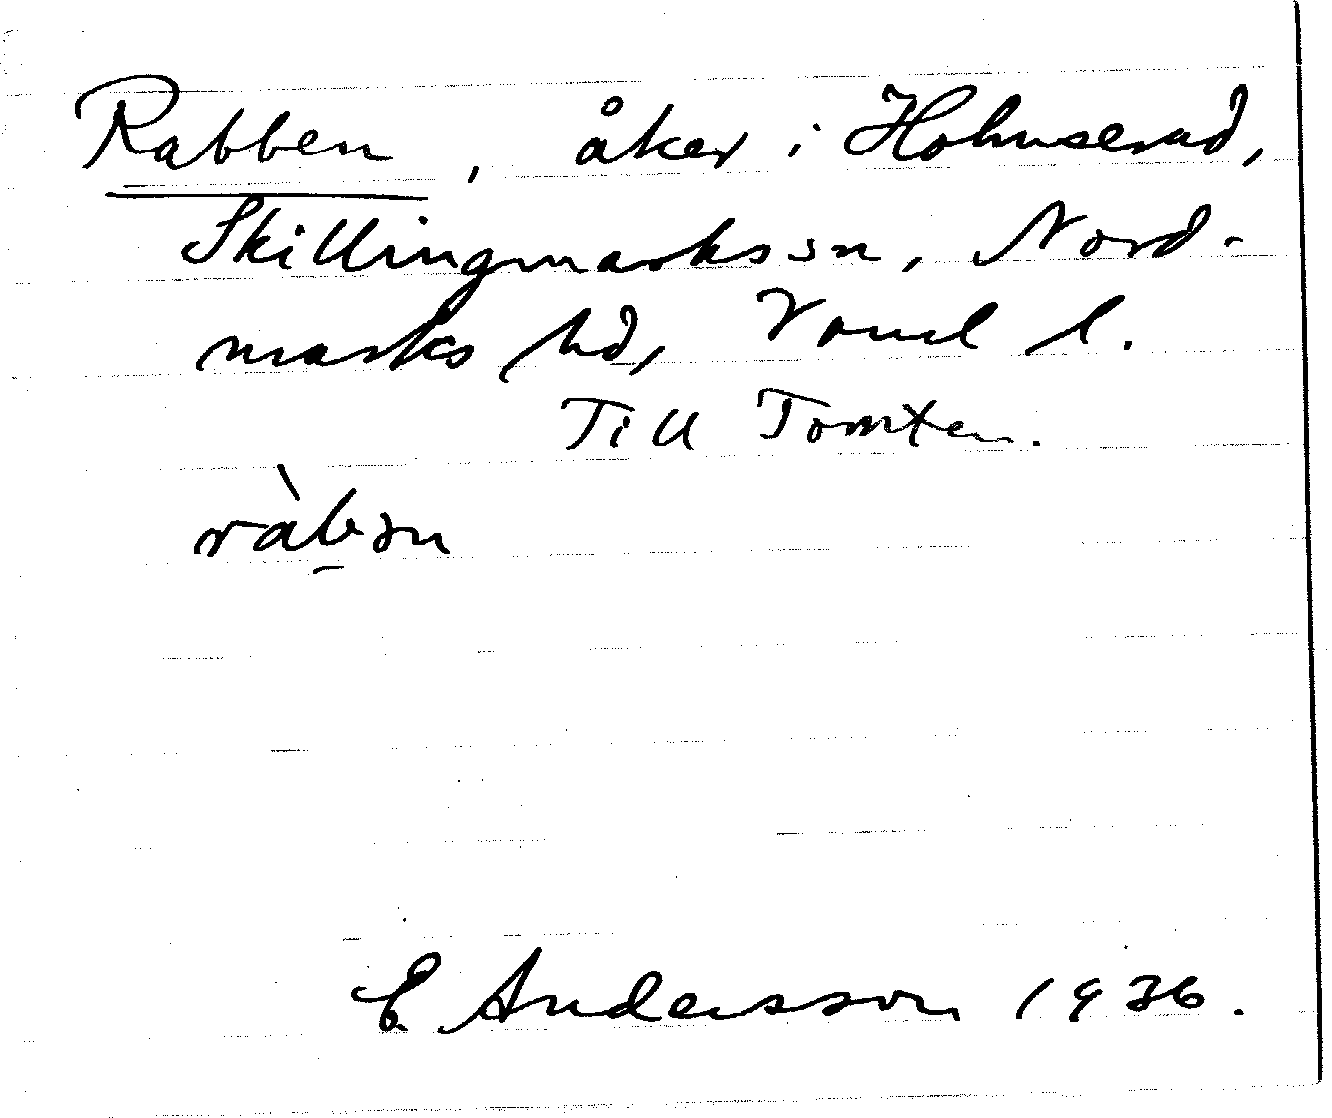 Rabben, åker i Holmserud,
Skillingmarks sn, Nord-
marks hd, Vrml l.
Till Tomten.
ràb̠ən
E Andersson 1936.